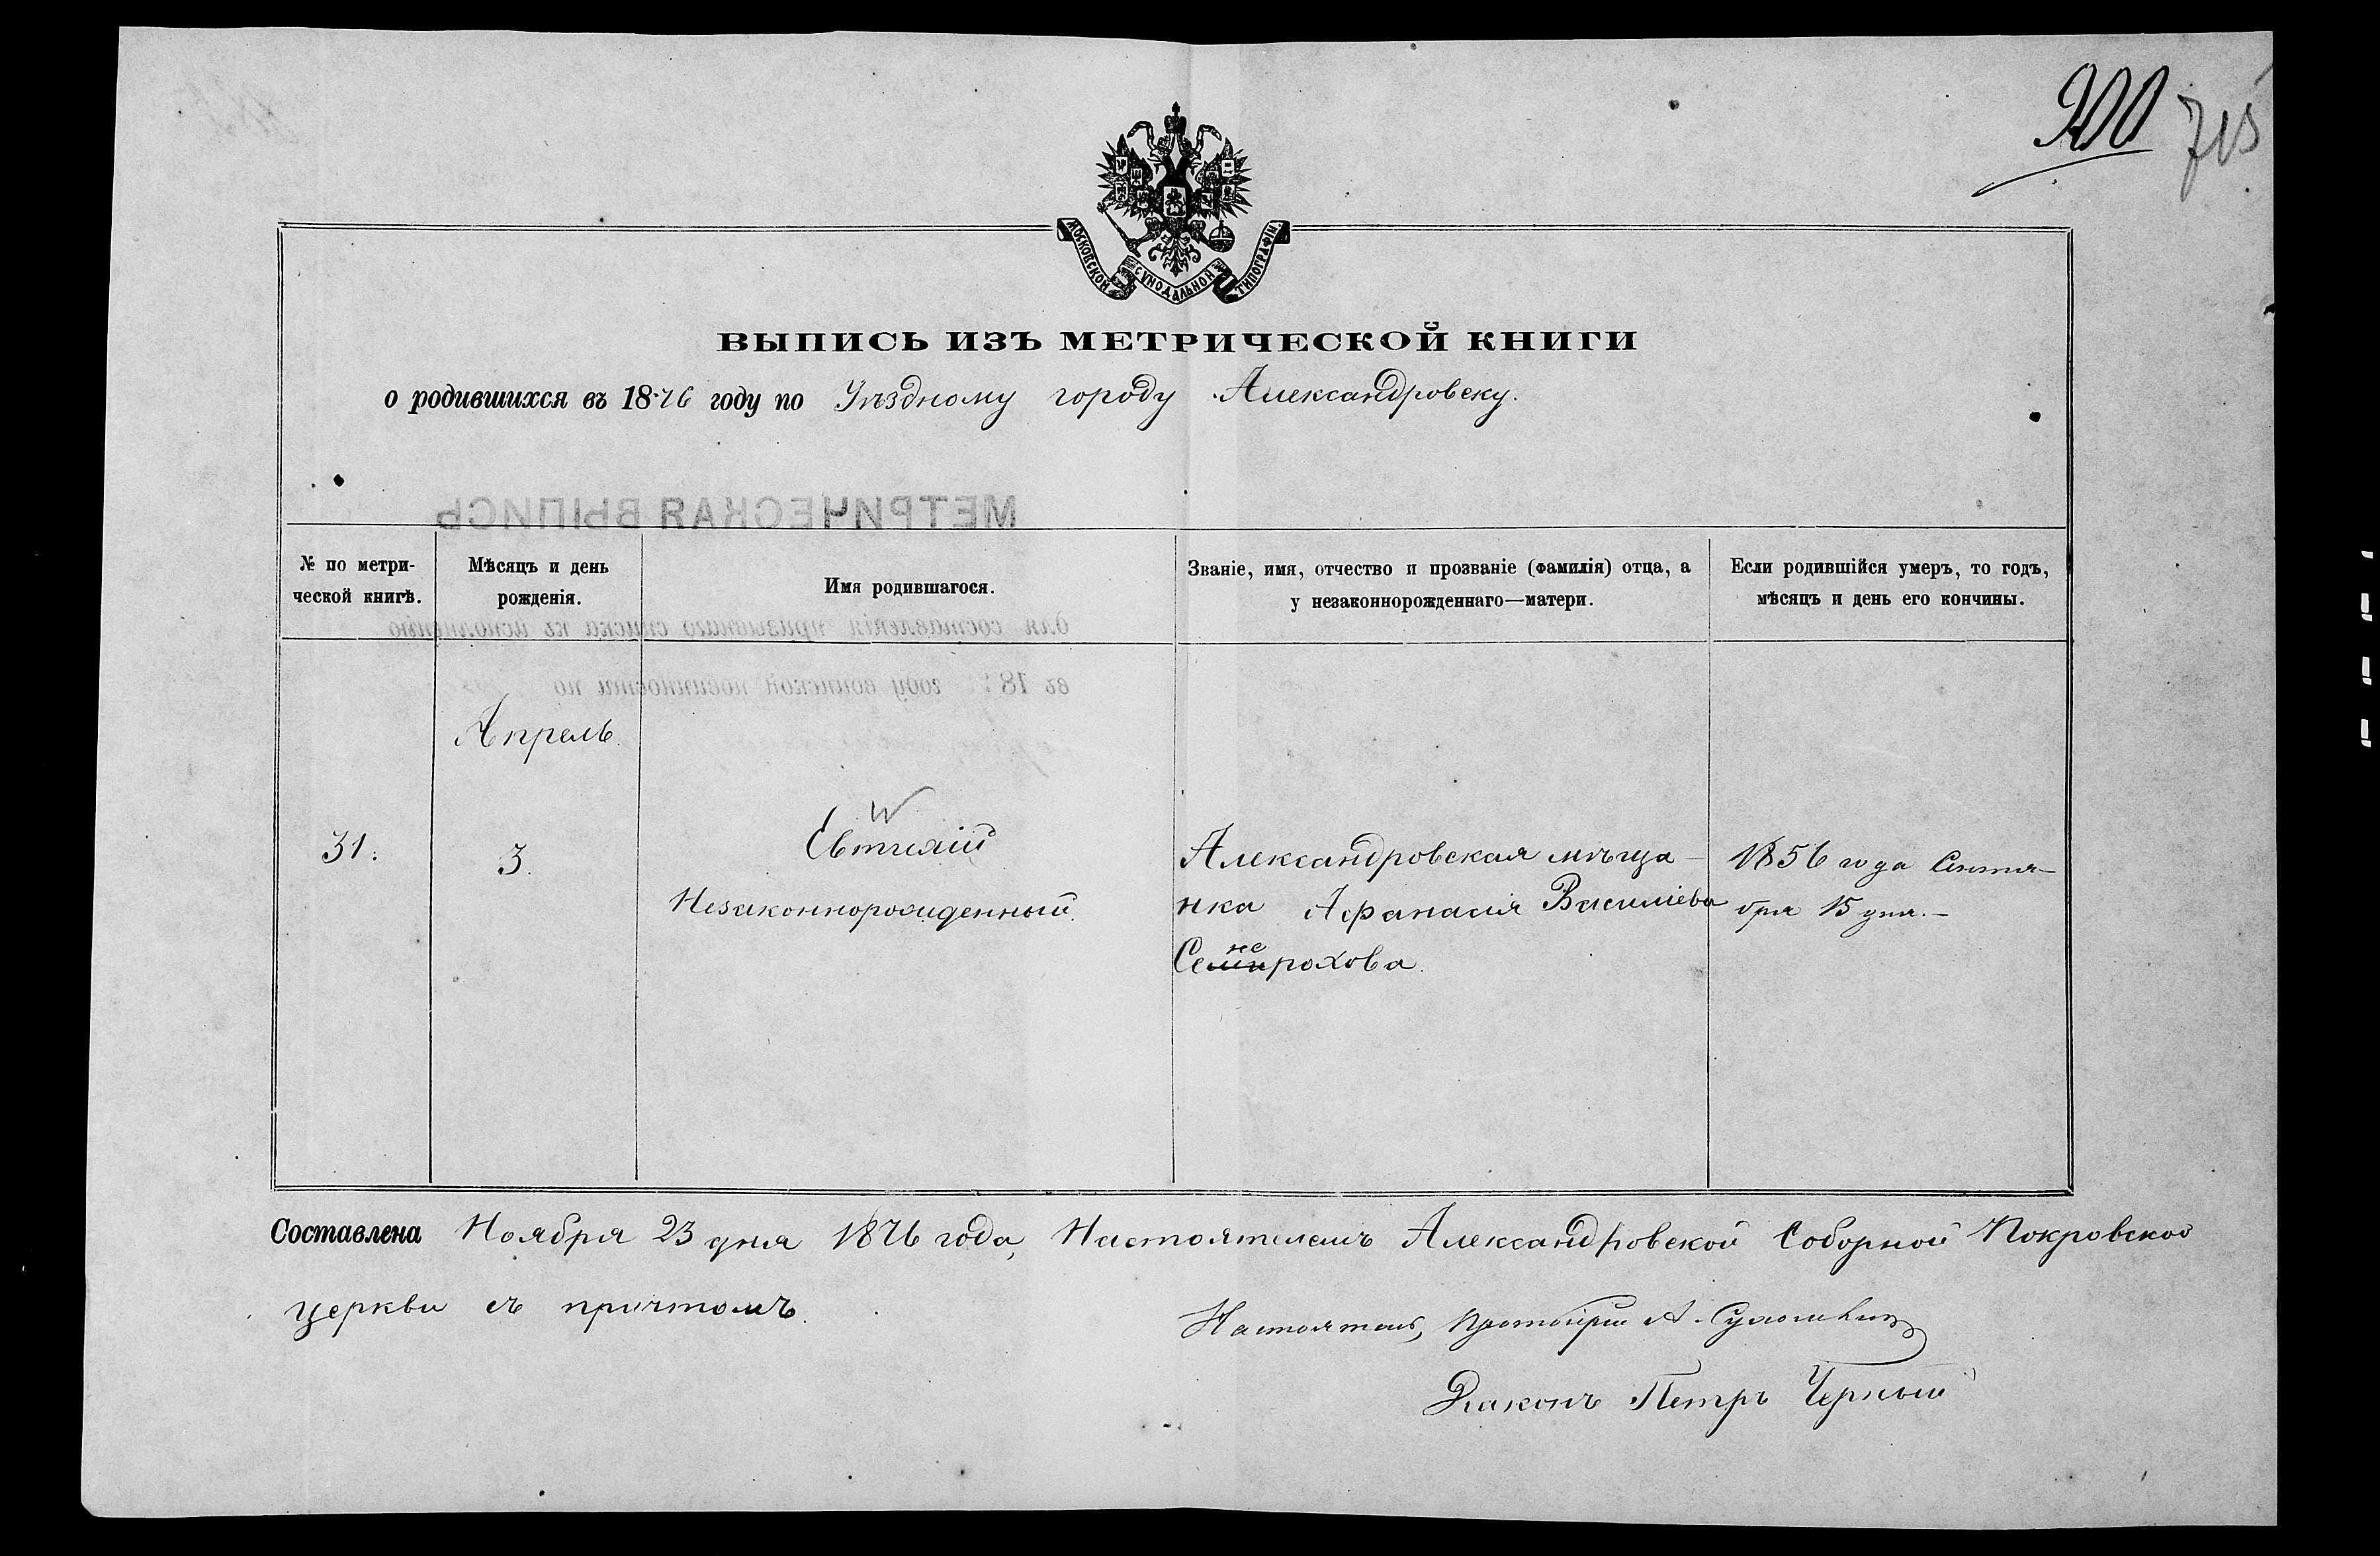 900 715
МОСКОВСКОЙ СУНОДАЛЬНОЙ ТИПОГРАФІИ
ВЫПИСЬ ИЗЪ МЕТРИЧЕСКОЙ КНИГИ
о родившихся въ 1876 году по Уѣздному городу Александровску.
МЕТРИЧЕСКАЯ ВЫПИСЬ
№ по метри-
ческой книгѣ.
Мѣсяцъ и день
рожденія.
Имя родившагося.
Званіе, имя, отчество и прозваніе (фамилія) отца, а
у незаконнорожденнаго—матери.
Если родившійся умеръ, то годъ,
мѣсяцъ и день его кончины.
для составленія призывнаго списка къ исполненію
въ 18 году воинской повинности по
Апрель.
31.
3.
Евтихій
Незаконнорожденный.
Александровская мѣща-
нка Афанасія Василіева
не
Семирохова.
1856 года Сентя-
бря 15 дня.—
Составлена Ноября 23 дня 1876 года, Настоятелемъ Александровской Соборной Покровской
церкви съ причтомъ.
Настоятель, Протоіерей А.
Діаконъ Петръ Черный